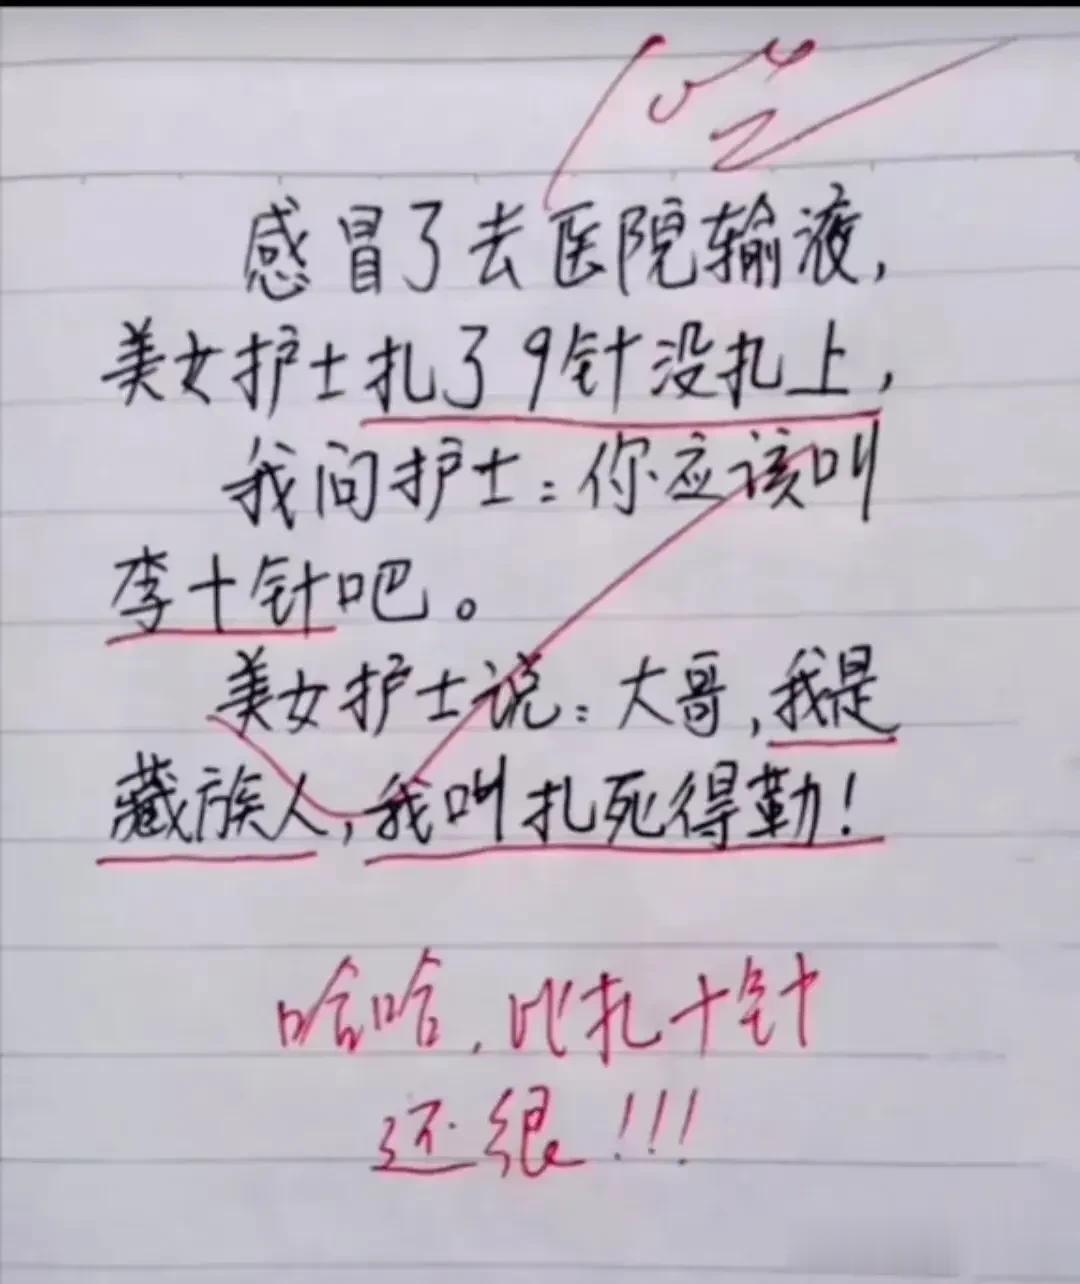 感冒了去医院输液,
美女护士扎了9针没扎上,
我问护士:你应该叫
李十针吧。
美女护士说:大哥,我是
藏族人,我叫扎死得勤!
哈哈,比扎十针
还狠!!!